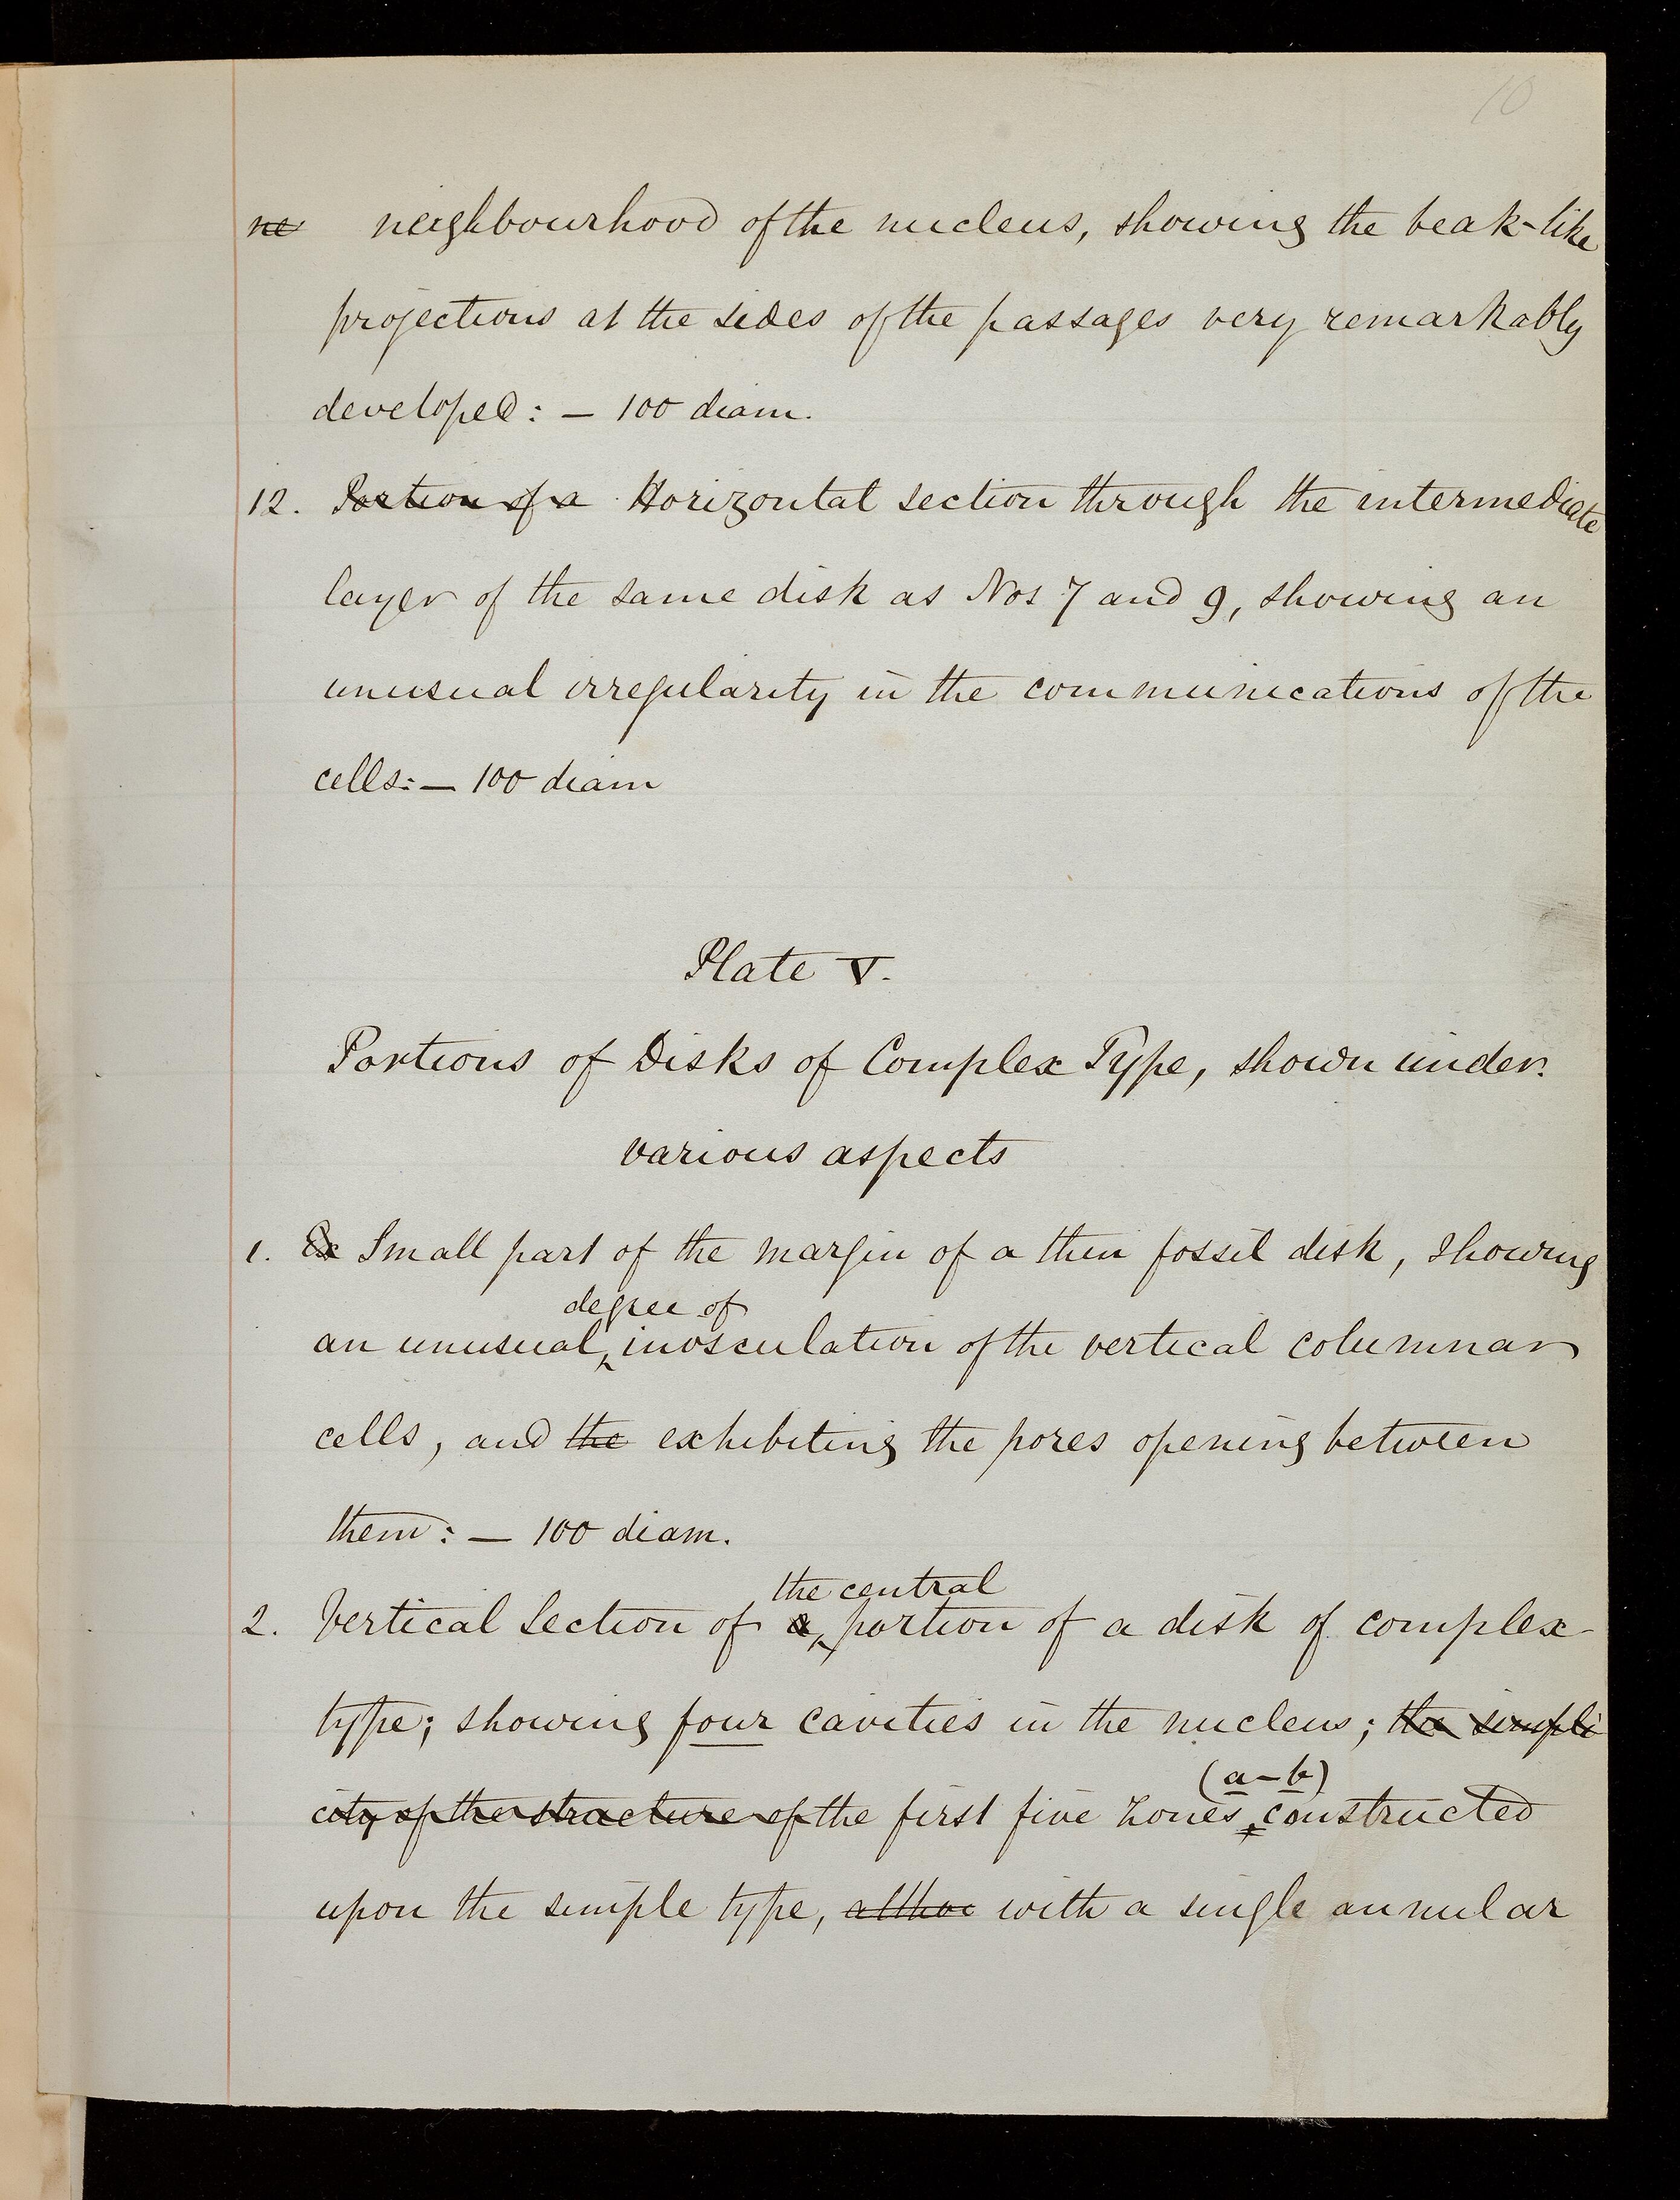 10
ne neighbourhood of the nucleus, showing the beak-like
projections at the sides of the passages very remarkably
developed: — 100 diam.
12. Portion of a Horizontal section through the intermediate
layer of the same disk as Nos 7 and 9, showing an
unusual irregularity in the communications of the
cells: — 100 diam
Plate V.
Portions of Disks of Complex Type, shown under
various aspects
1. Ex Small part of the margin of a thin fossil disk, showing
degree of
an unusual inosculation of the vertical columnar
cells, and the exhibiting the pores opening between
them: — 100 diam.
the central
2. Vertical Section of a portion of a disk of complex
type; showing four cavities in the nucleus; the simpli
(a–b)
city of the structure of the first five zones constructed
upon the simple type, althou with a single annular